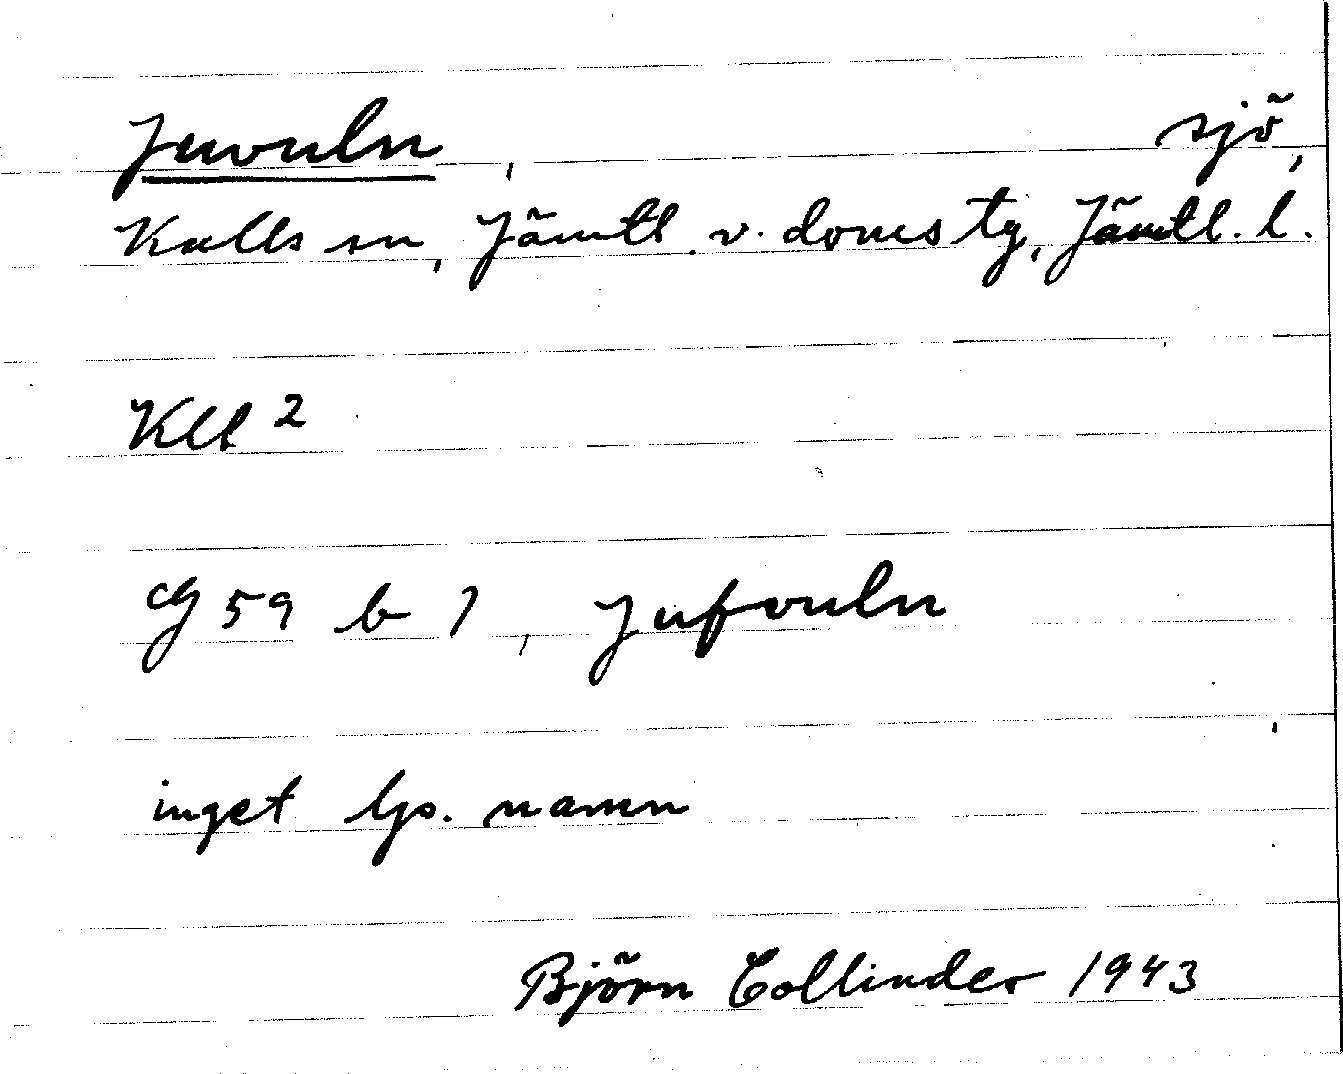 Juvuln, sjö,
Kalls sn, Jämtl. v. doms tg, Jämtl. l.
Kll 2
cg 59 b 1, Jufvuln
inget lp. namn
Björn Collinder 1943